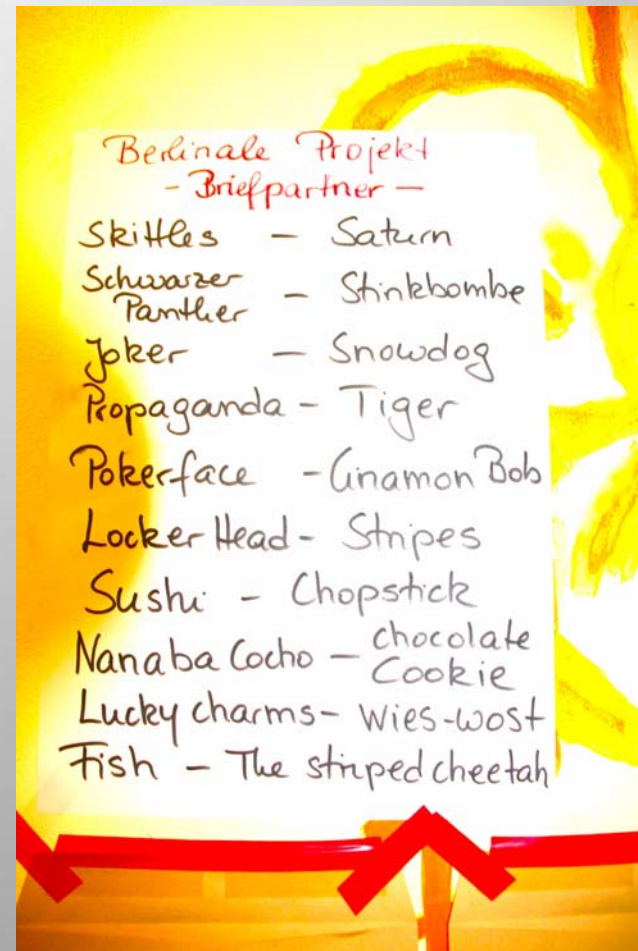 Berlinale Projekt
- Briefpartner -
Skittles - Saturn
Schwarzer
Panther - Stinkbombe
Joker - Snowdog
Propaganda - Tiger
Pokerface - Cinamon Bob
Locker Head - Stripes
Sushi - Chopstick
Nanaba Cocho - chocolate
Cookie
Lucky charms - Wies-wost
Fish - The striped cheetah